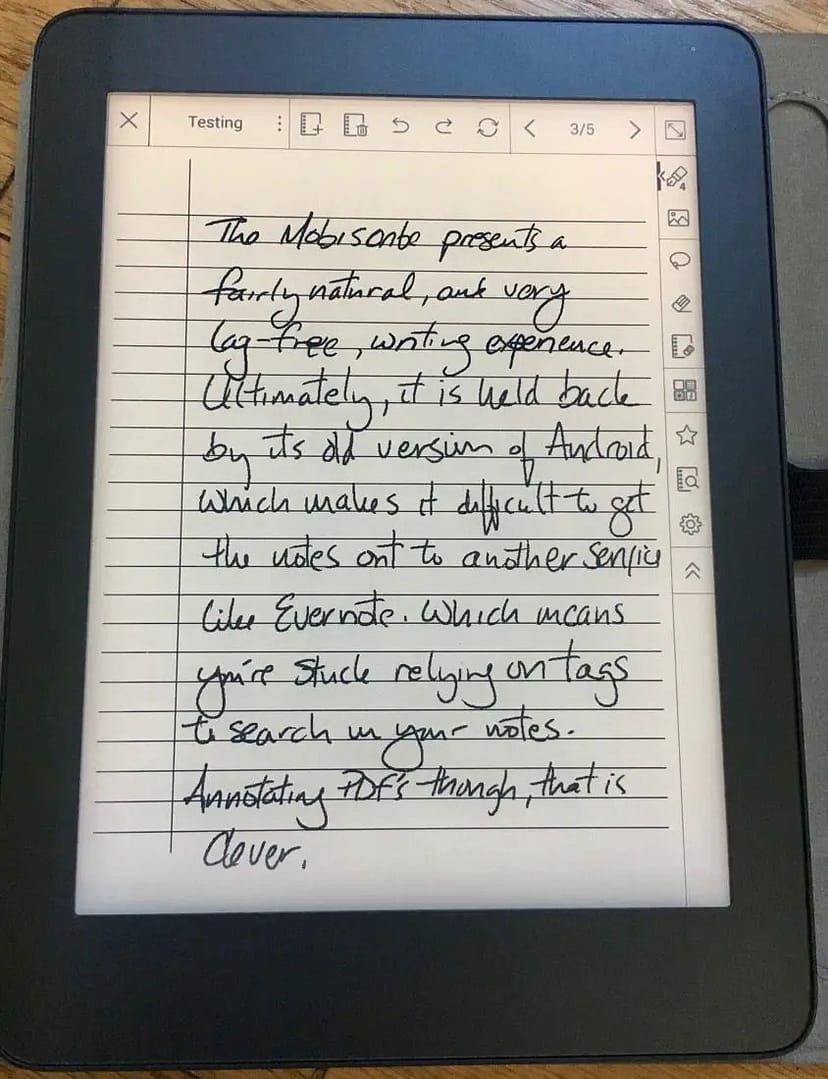 Testing
3/5
4
The Mobiscribe presents a
fairly natural, and very
lag-free, writing experience.
Ultimately, it is held back
by its old version of Android,
which makes it difficult to get
the notes out to another service
like Evernote. Which means
you're stuck relying on tags
to search in your notes.
Annotating PDF's though, that is
clever.